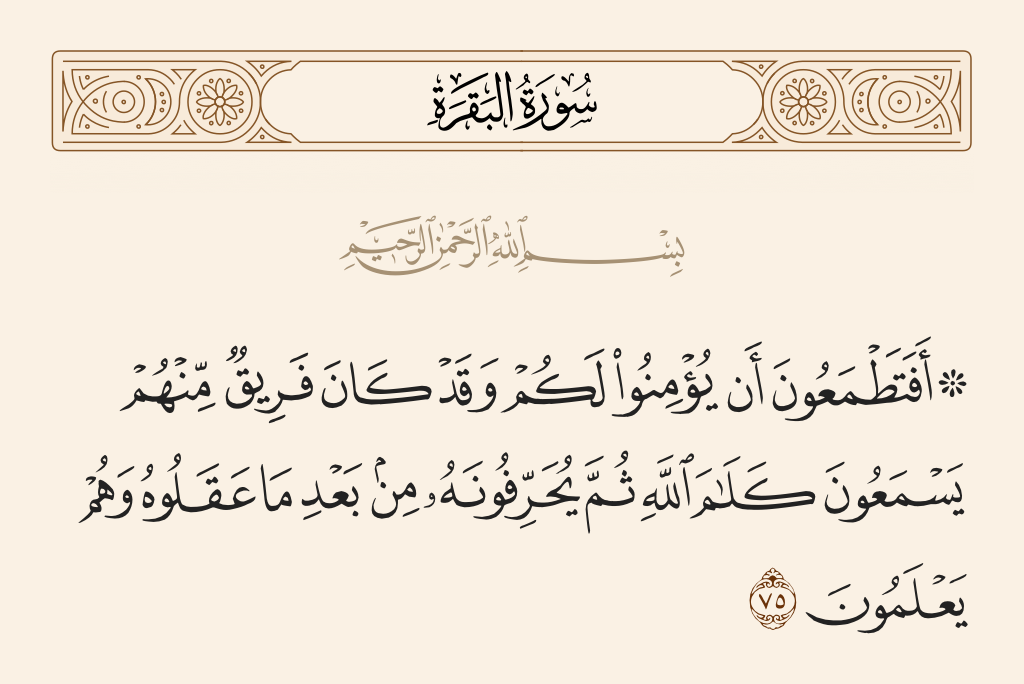 سُورَةُ البَقَرَةِ
بِسْمِ ٱللَّهِ ٱلرَّحْمَٰنِ ٱلرَّحِيمِ
۞ أَفَتَطْمَعُونَ أَن يُؤْمِنُوا۟ لَكُمْ وَقَدْ كَانَ فَرِيقٌ مِّنْهُمْ
يَسْمَعُونَ كَلَٰمَ ٱللَّهِ ثُمَّ يُحَرِّفُونَهُۥ مِنۢ بَعْدِ مَا عَقَلُوهُ وَهُمْ
يَعْلَمُونَ ٧٥